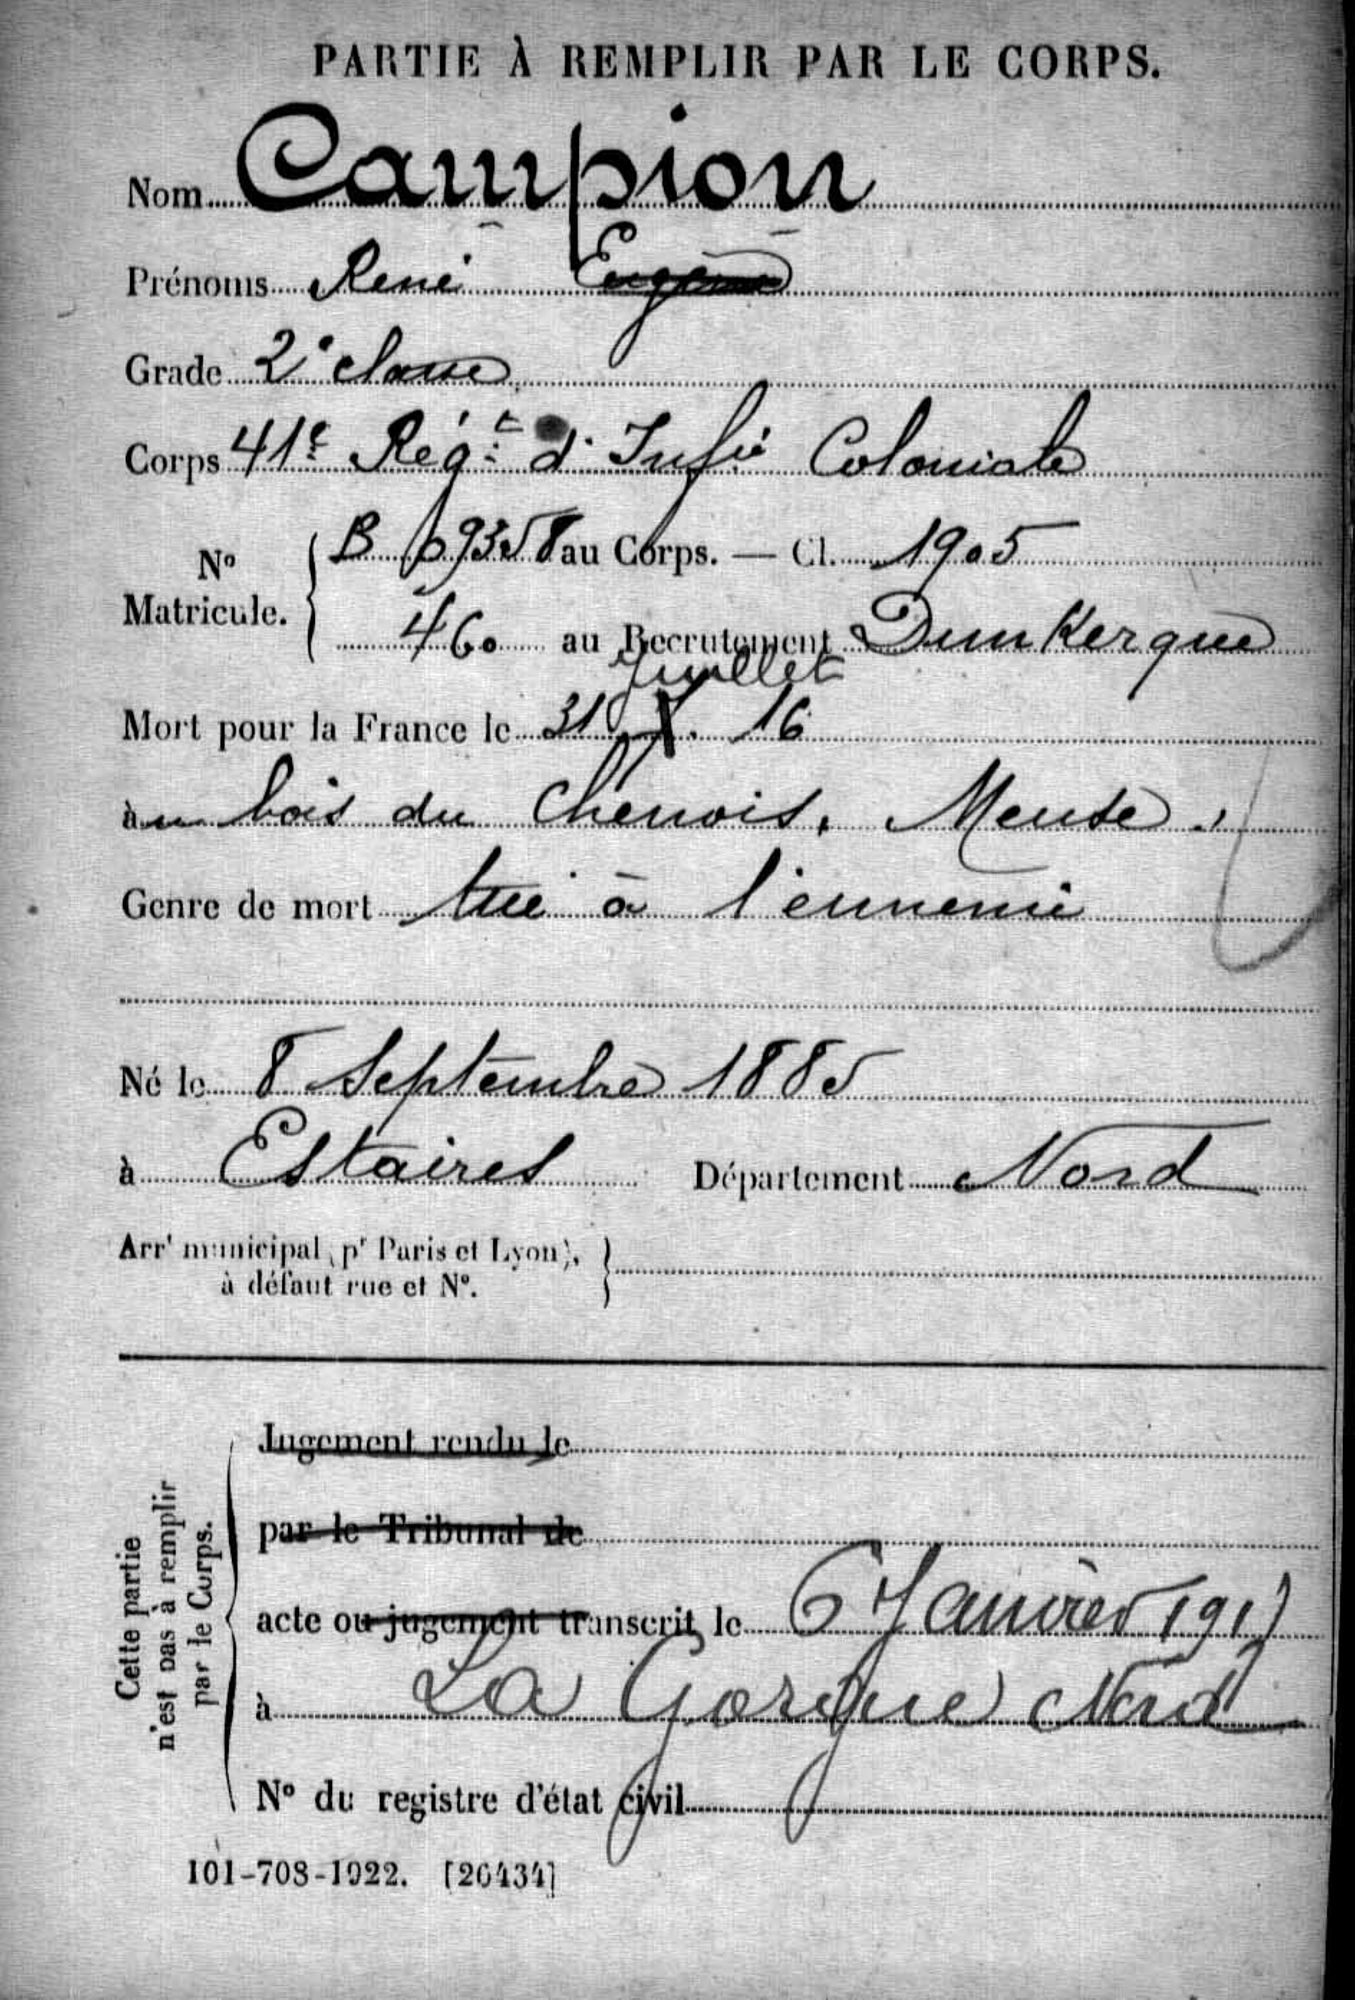 PARTIE À REMPLIR PAR LE CORPS.
Nom Campion
Prénoms René Eugène
Grade 2e classe
Corps 41e Régt d'Infie Coloniale
No Matricule. B 09358 au Corps. — Cl. 1905
460 au Recrutement Dunkerque
juillet
Mort pour la France le 31 7. 16
au bois du Chenois, Meuse.
Genre de mort tué à l'ennemi
Né le 8 Septembre 1885
à Estaires Département Nord
Arrt municipal (pr Paris et Lyon),
à défaut rue et No.
Cette partie
n'est pas à remplir
par le Corps.
Jugement rendu le
par le Tribunal de
acte ou jugement transcrit le 6 Janvier 1917
à La Gorgue Nord
No du registre d'état civil
101-708-1922. [26434]